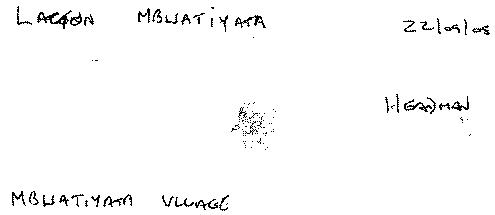 LACKSON MBWATIYATA
22/09/05
HEADMAN
MBWATIYATA VILLAGE